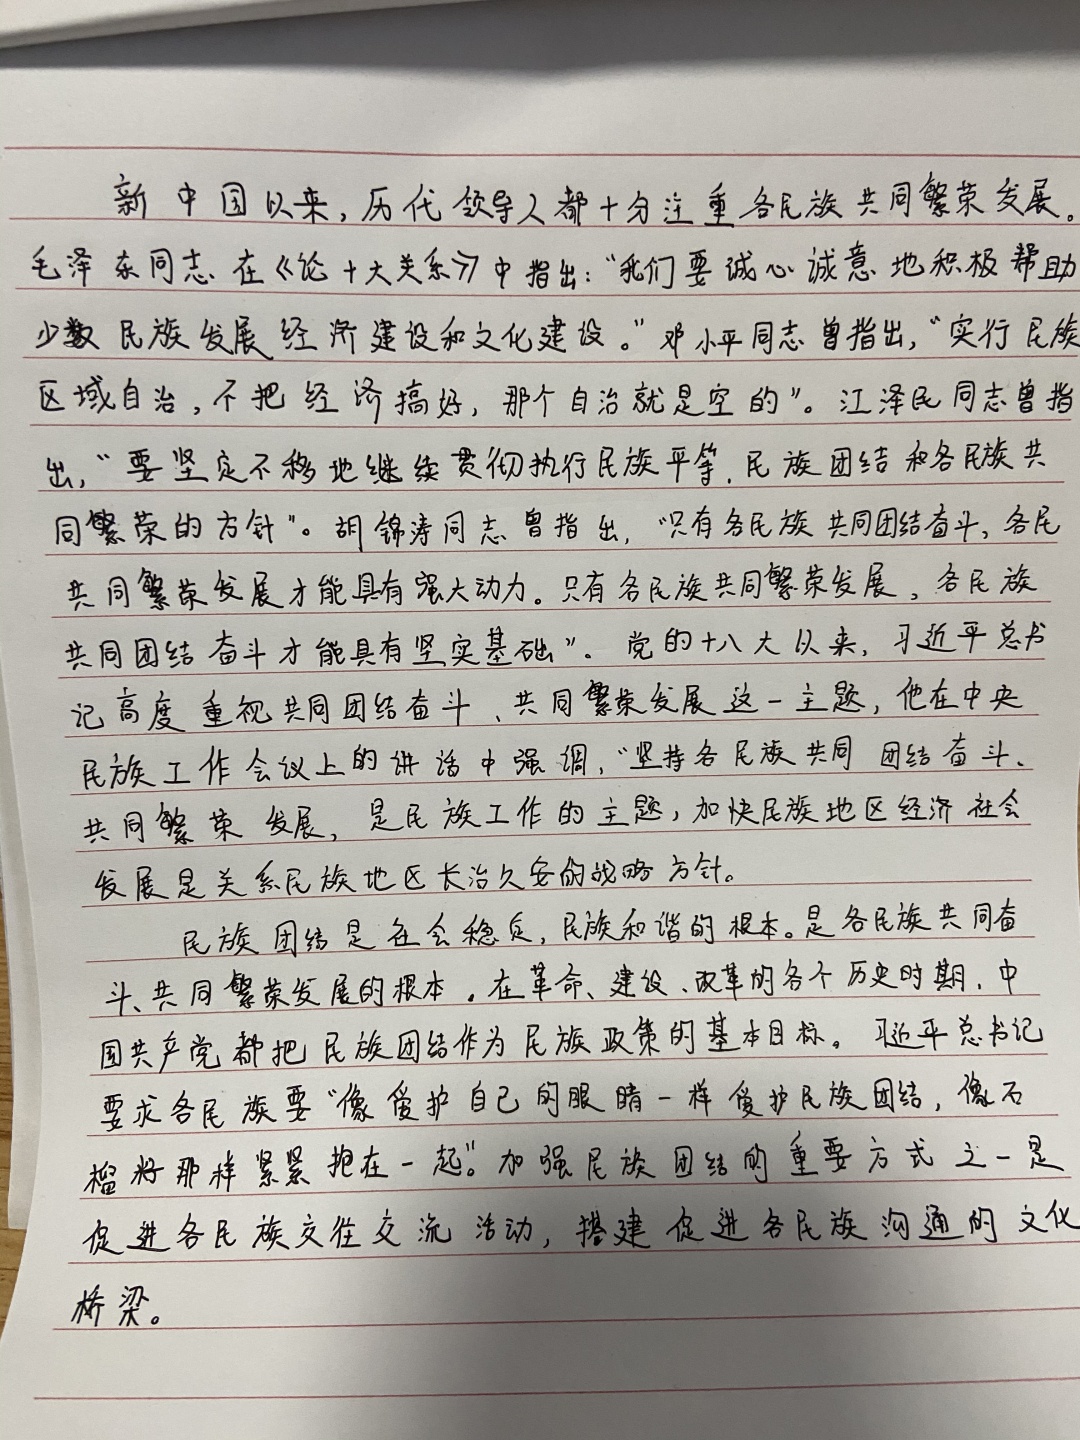 新中国以来,历代领导人都十分注重各民族共同繁荣发展。
毛泽东同志在《论十大关系》中指出:“我们要诚心诚意地积极帮助
少数民族发展经济建设和文化建设。”邓小平同志曾指出,“实行民族
区域自治,不把经济搞好,那个自治就是空的”。江泽民同志曾指
出,“要坚定不移地继续贯彻执行民族平等、民族团结和各民族共
同繁荣的方针”。胡锦涛同志曾指出,“只有各民族共同团结奋斗,各民
共同繁荣发展才能具有强大动力。只有各民族共同繁荣发展,各民族
共同团结奋斗才能具有坚实基础”。党的十八大以来,习近平总书
记高度重视共同团结奋斗、共同繁荣发展这一主题,他在中央
民族工作会议上的讲话中强调,“坚持各民族共同团结奋斗、
共同繁荣发展,是民族工作的主题,加快民族地区经济社会
发展是关系民族地区长治久安的战略方针。
民族团结是社会稳定,民族和谐的根本。是各民族共同奋
斗、共同繁荣发展的根本。在革命、建设、改革的各个历史时期,中
国共产党都把民族团结作为民族政策的基本目标。习近平总书记
要求各民族要“像爱护自己的眼睛一样爱护民族团结,像石
榴籽那样紧紧抱在一起”。加强民族团结的重要方式之一是
促进各民族交往交流活动,搭建促进各民族沟通的文化
桥梁。